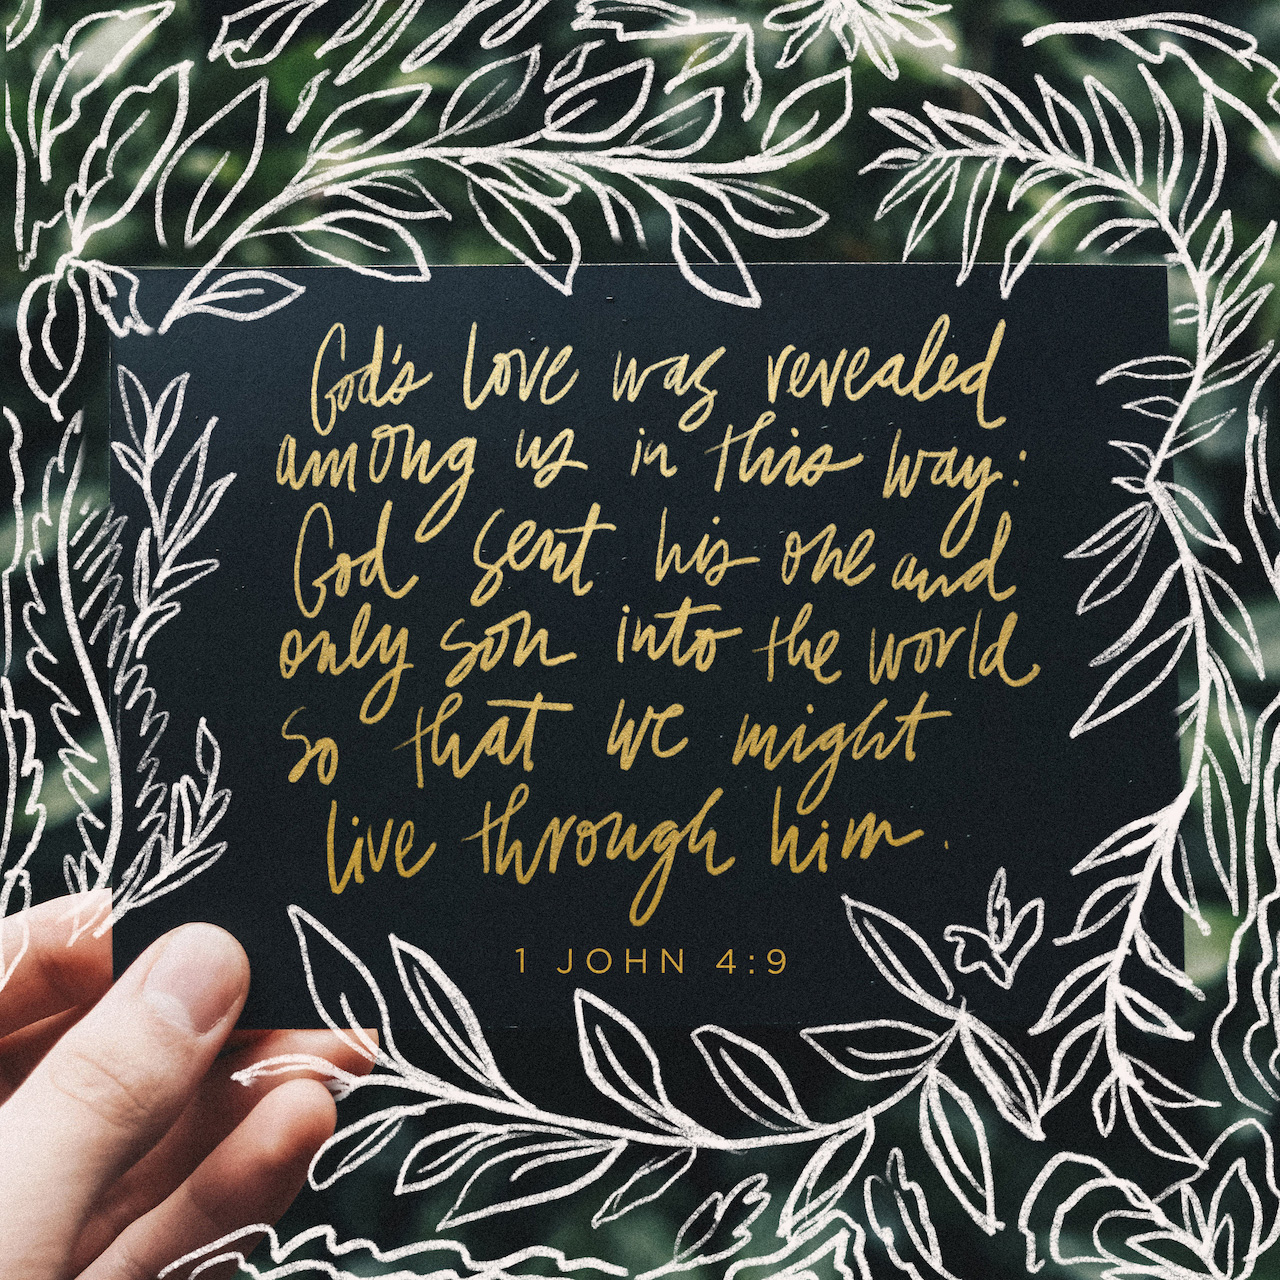 God's love was revealed
among us in this way:
God sent his one and
only son into the world
so that we might
live through him.
1 JOHN 4:9